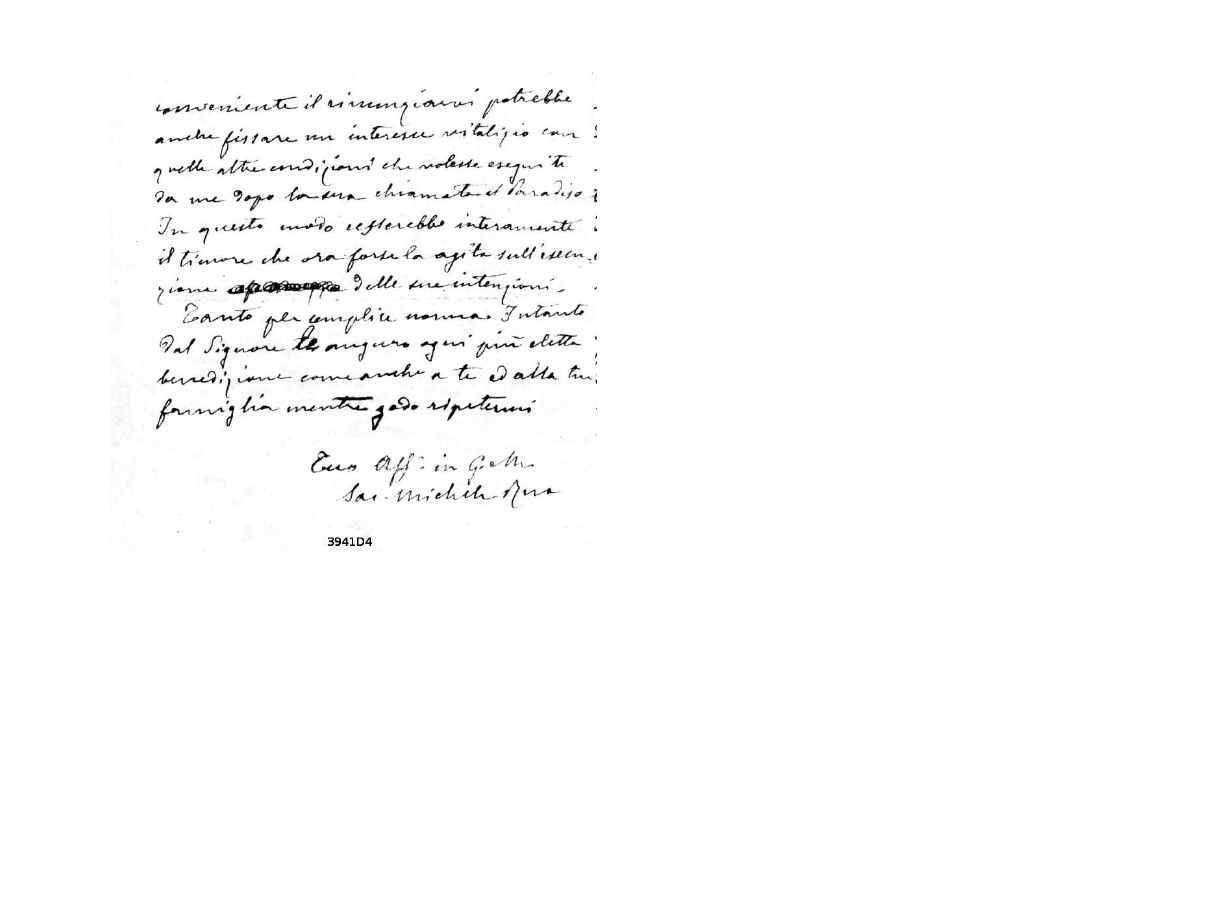 conveniente il rinunziarvi potrebbe
anche fissare un interesse vitalizio con
quelle altre condizioni che volesse eseguite
da me dopo la sua chiamata al Paradiso
In questo modo cesserebbe interamente
il timore che ora forse la agita sull'esecu-
zione delle sue intenzioni.
Tanto per semplice norma. Intanto
dal Signore le auguro ogni più eletta
benedizione come anche a te ed alla tua
famiglia mentre godo ripetermi
Tuo Aff.o in G. e M.
Sac. Michele Rua
3941D4